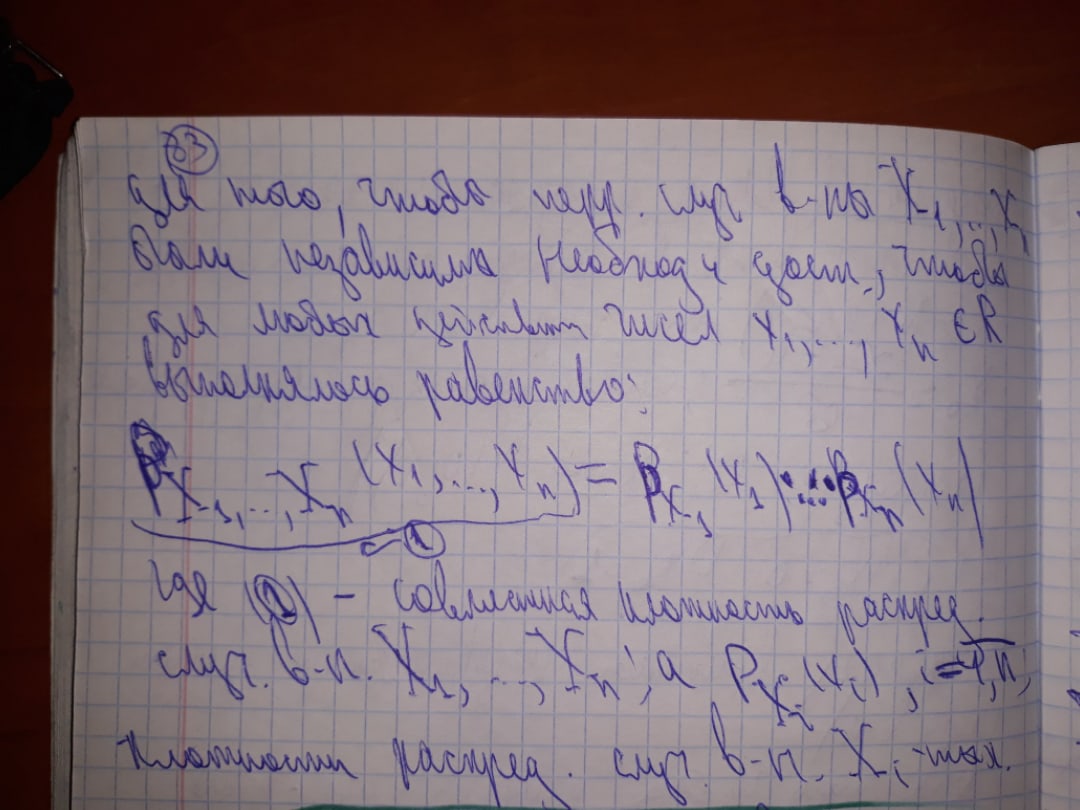 83
Для того, чтобы непр. случ в-ны X₁,..,Xₙ
были независимы необход и дост., чтобы
для любых действит чисел x₁,..., xₙ ∈ R
выполнялось равенство:
P_{X₁,..,Xₙ}(x₁,...,xₙ) = P_{X₁}(x₁)·...·P_{Xₙ}(xₙ)
①
где (①) - совместная плотность распред.
случ. в-н. X₁,...,Xₙ; а P_{Xᵢ}(xᵢ), i=1,n;
плотности распред. случ в-н. Xᵢ-тых.